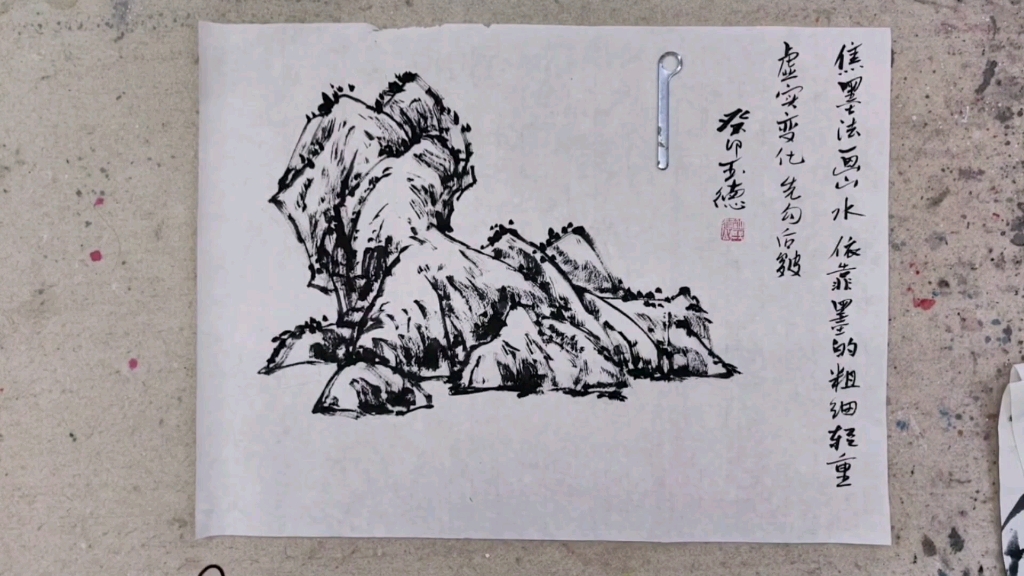 焦墨法画山水 依靠墨的粗细轻重
虚实变化 先勾后皴
癸卯玉德